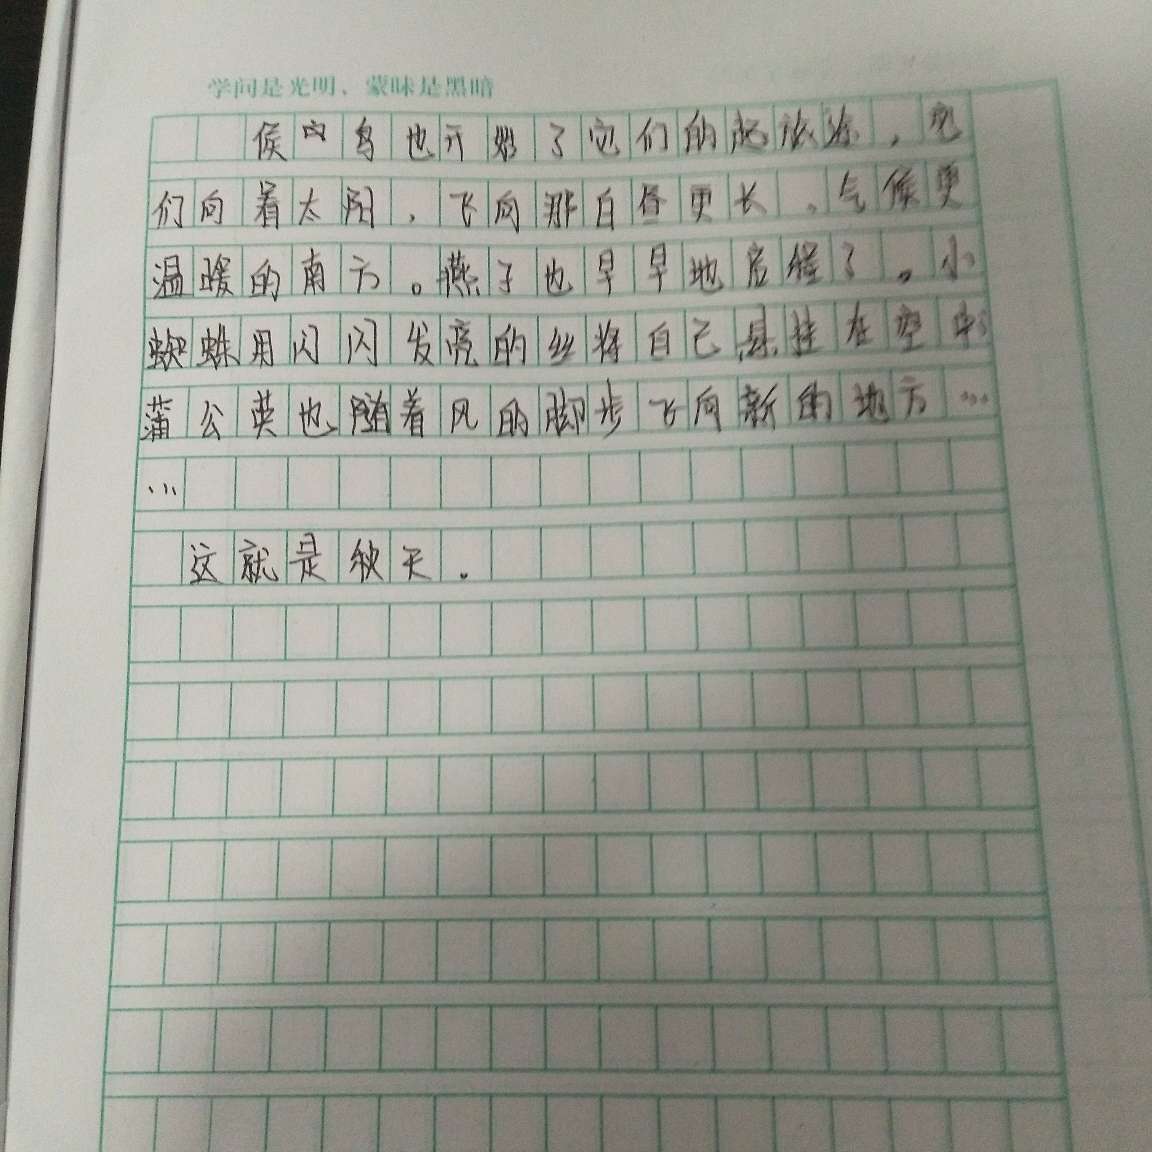 学问是光明、蒙昧是黑暗
候鸟也开始了它们的起旅途，它
们向着太阳，飞向那白昼更长，气候更
温暖的南方。燕子也早早地启程了。小
蜘蛛用闪闪发亮的丝将自己悬挂在空中
蒲公英也随着风的脚步飞向新的地方…
…
这就是秋天。